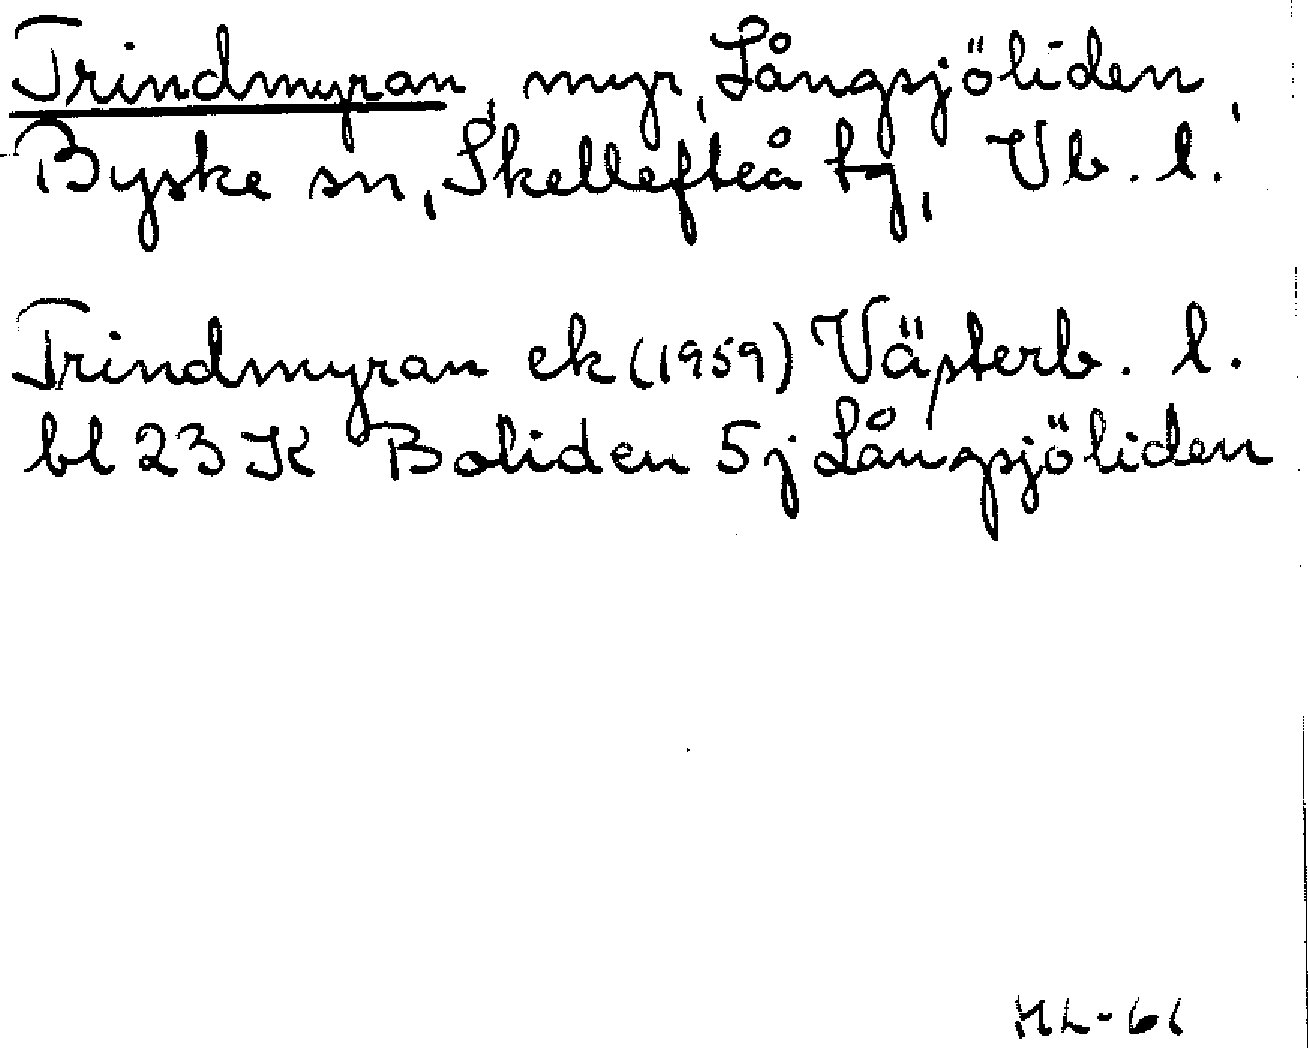 Trindmyran, myr, Långsjöliden,
Byske sn, Skellefteå tg, Vb. l.
Trindmyran ek (1959) Västerb. l.
bl 23 K Boliden 5j Långsjöliden
HL-61